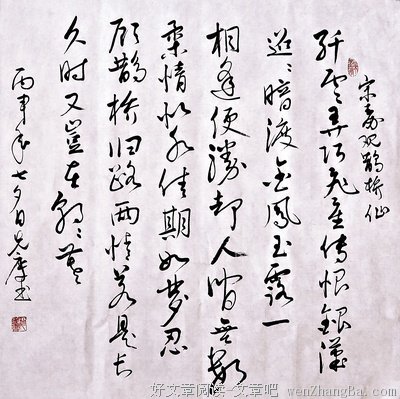 宋秦观鹊桥仙
纤云弄巧飞星传恨银漢
迢迢暗渡金风玉露一
相逢便胜却人间無数
柔情似水佳期如梦忍
顾鹊桥归路两情若是长
久时又岂在朝朝暮暮
丙申年七夕日书
好文章阅读-文章吧 wenZhangBa.Com